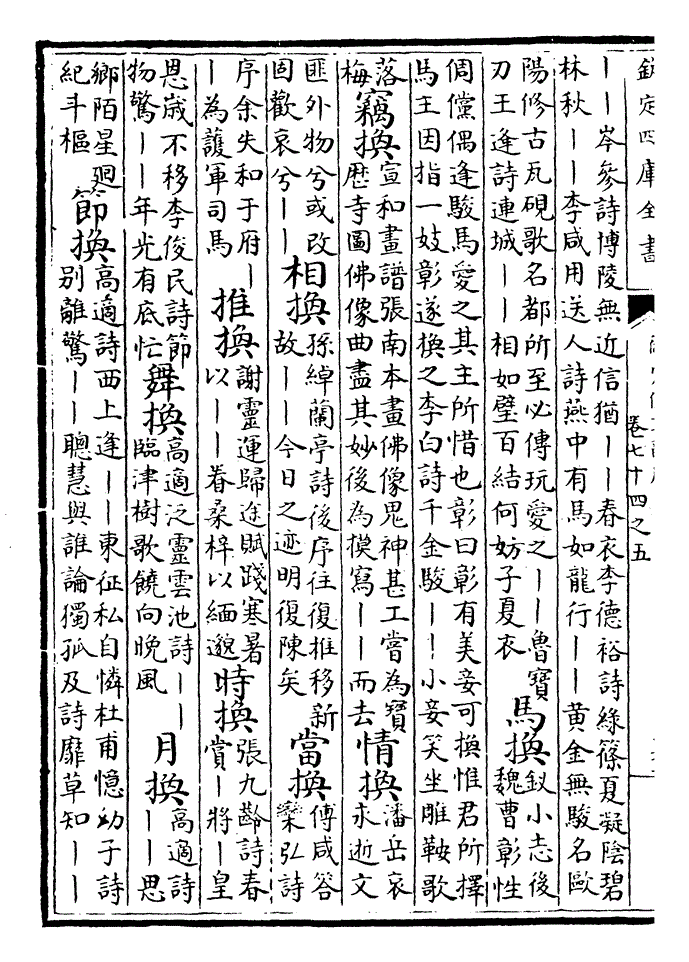 欽定四庫全書
卷七十四之五
——岑參詩博陵無近信猶——春衣李德裕詩緑篠夏凝陰碧
林秋——李咸用送人詩燕中有馬如龍行——黄金無駿名歐
陽修古瓦硯歌名都所至必傳玩愛之——魯寶
刀王逢詩連城——相如璧百結何妨子夏衣
馬換
釵小志後
魏曹彰性
倜儻偶逢駿馬愛之其主所惜也彰曰彰有美妾可換惟君所擇
馬主因指一妓彰遂換之李白詩千金駿——小妾笑坐雕鞍歌
落
梅
竊換
宣和畫譜張南本畫佛像鬼神甚工嘗為寶
歴寺圖佛像曲盡其妙後為摸寫——而去
情換
潘岳哀
永逝文
匪外物兮或改
固歡哀兮——
相換
孫綽蘭亭詩後序往復推移新
故——今日之迹明復陳矣
當換
傅咸答
欒弘詩
序余失和于府—
—為䕶軍司馬
推換
謝靈運歸途賦踐寒暑
以——眷桑梓以緬邈
時換
張九齡詩春
賞—將—皇
恩歳不移李俊民詩節
物驚——年光有底忙
舞換
高適泛靈雲池詩——
臨津樹歌饒向晩風
月換
高適詩
——思
鄉陌星廻
紀斗樞
節換
高適詩西上逢——東征私自憐杜甫憶幼子詩
别離驚——聰慧與誰論獨孤及詩靡草知——